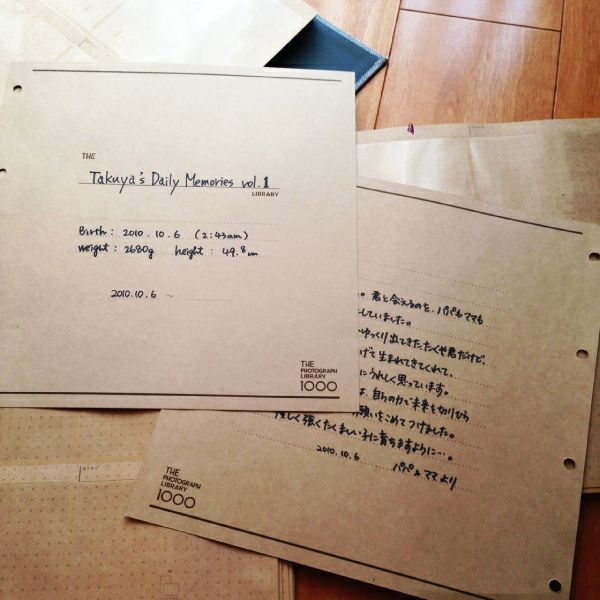 THE
Takuya's Daily Memories vol.1
LIBRARY
Birth : 2010. 10. 6 (2:43am)
weight : 2680g height : 49.8cm
2010.10.6 ~
THE
PHOTOGRAPH
LIBRARY
1000
。君と会えるのを、パパもママも
していました。
ゆっくり出てきたたくや君だけど、
げて生まれてきてくれて、
にうれしく思っています。
、自らの力で未来を切りひら
願いをこめてつけました。
しく強くたくましい子に育ちますように…。
2010.10.6 パパ & ママより
THE
PHOTOGRAPH
LIBRARY
1000